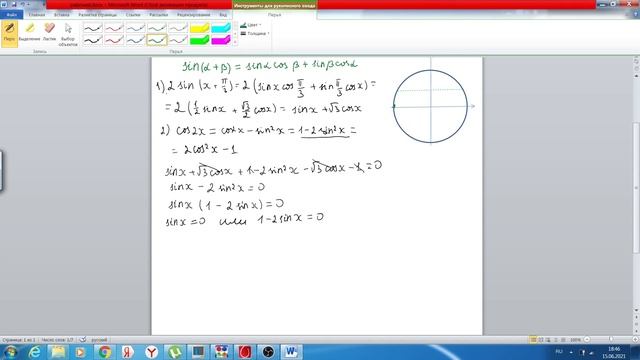 рабочий.docx - Microsoft Word (Сбой активации продукта)
Инструменты для рукописного ввода
Файл Главная Вставка Разметка страницы Ссылки Рассылки Рецензирование Вид Перья
Перо Выделение Ластик Выбор объектов
Цвет
Толщина
Перья
sin(α + β) = sinα cos β + sinβ cosα
1) 2 sin (x + π/3) = 2 (sinx cos π/3 + sin π/3 cosx) =
= 2 (1/2 sinx + √3/2 cosx) = sinx + √3 cosx
2) cos2x = cos²x - sin²x = 1-2sin²x =
= 2cos²x - 1
sinx + √3 cosx + 1-2sin²x - √3 cosx - 1 = 0
sinx - 2 sin²x = 0
sinx (1 - 2 sinx) = 0
sinx = 0 или 1-2sinx = 0
Страница: 1 из 1 Число слов: 1/7 русский 100%
RU 18:46
15.06.2021